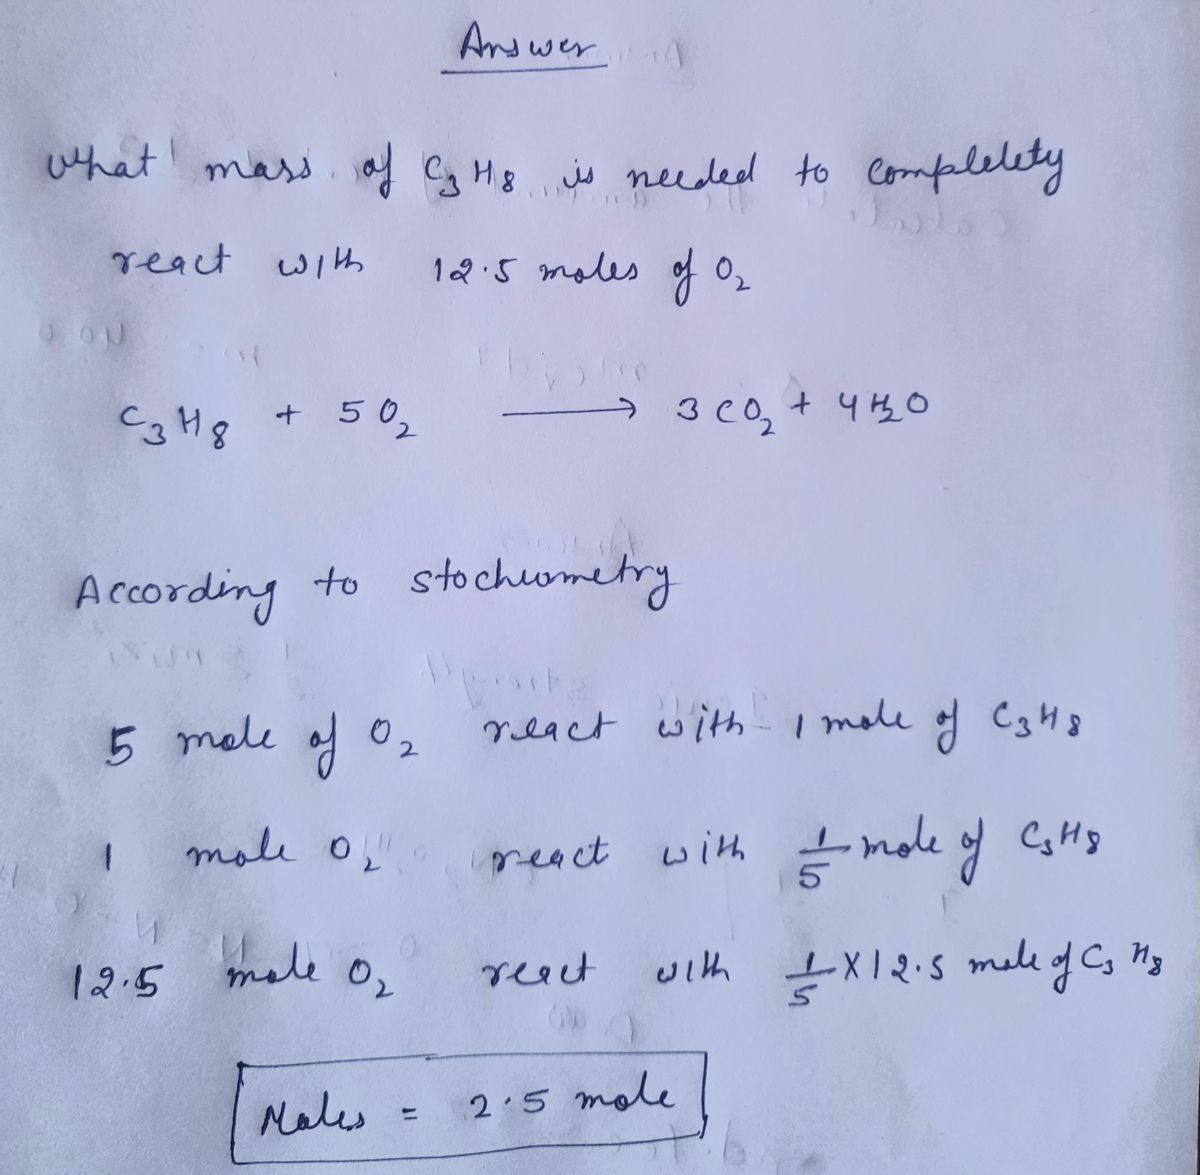 Answer
What mass of C3H8 is needed to completety
react with 12.5 moles of O2
C3H8 + 5O2 → 3CO2 + 4H2O
According to stocheometry
5 mole of O2 react with 1 mole of C3H8
1 mole O2 react with 1/5 mole of C3H8
12.5 mole O2 react with 1/5 X 12.5 mole of C3H8
Moles = 2.5 mole